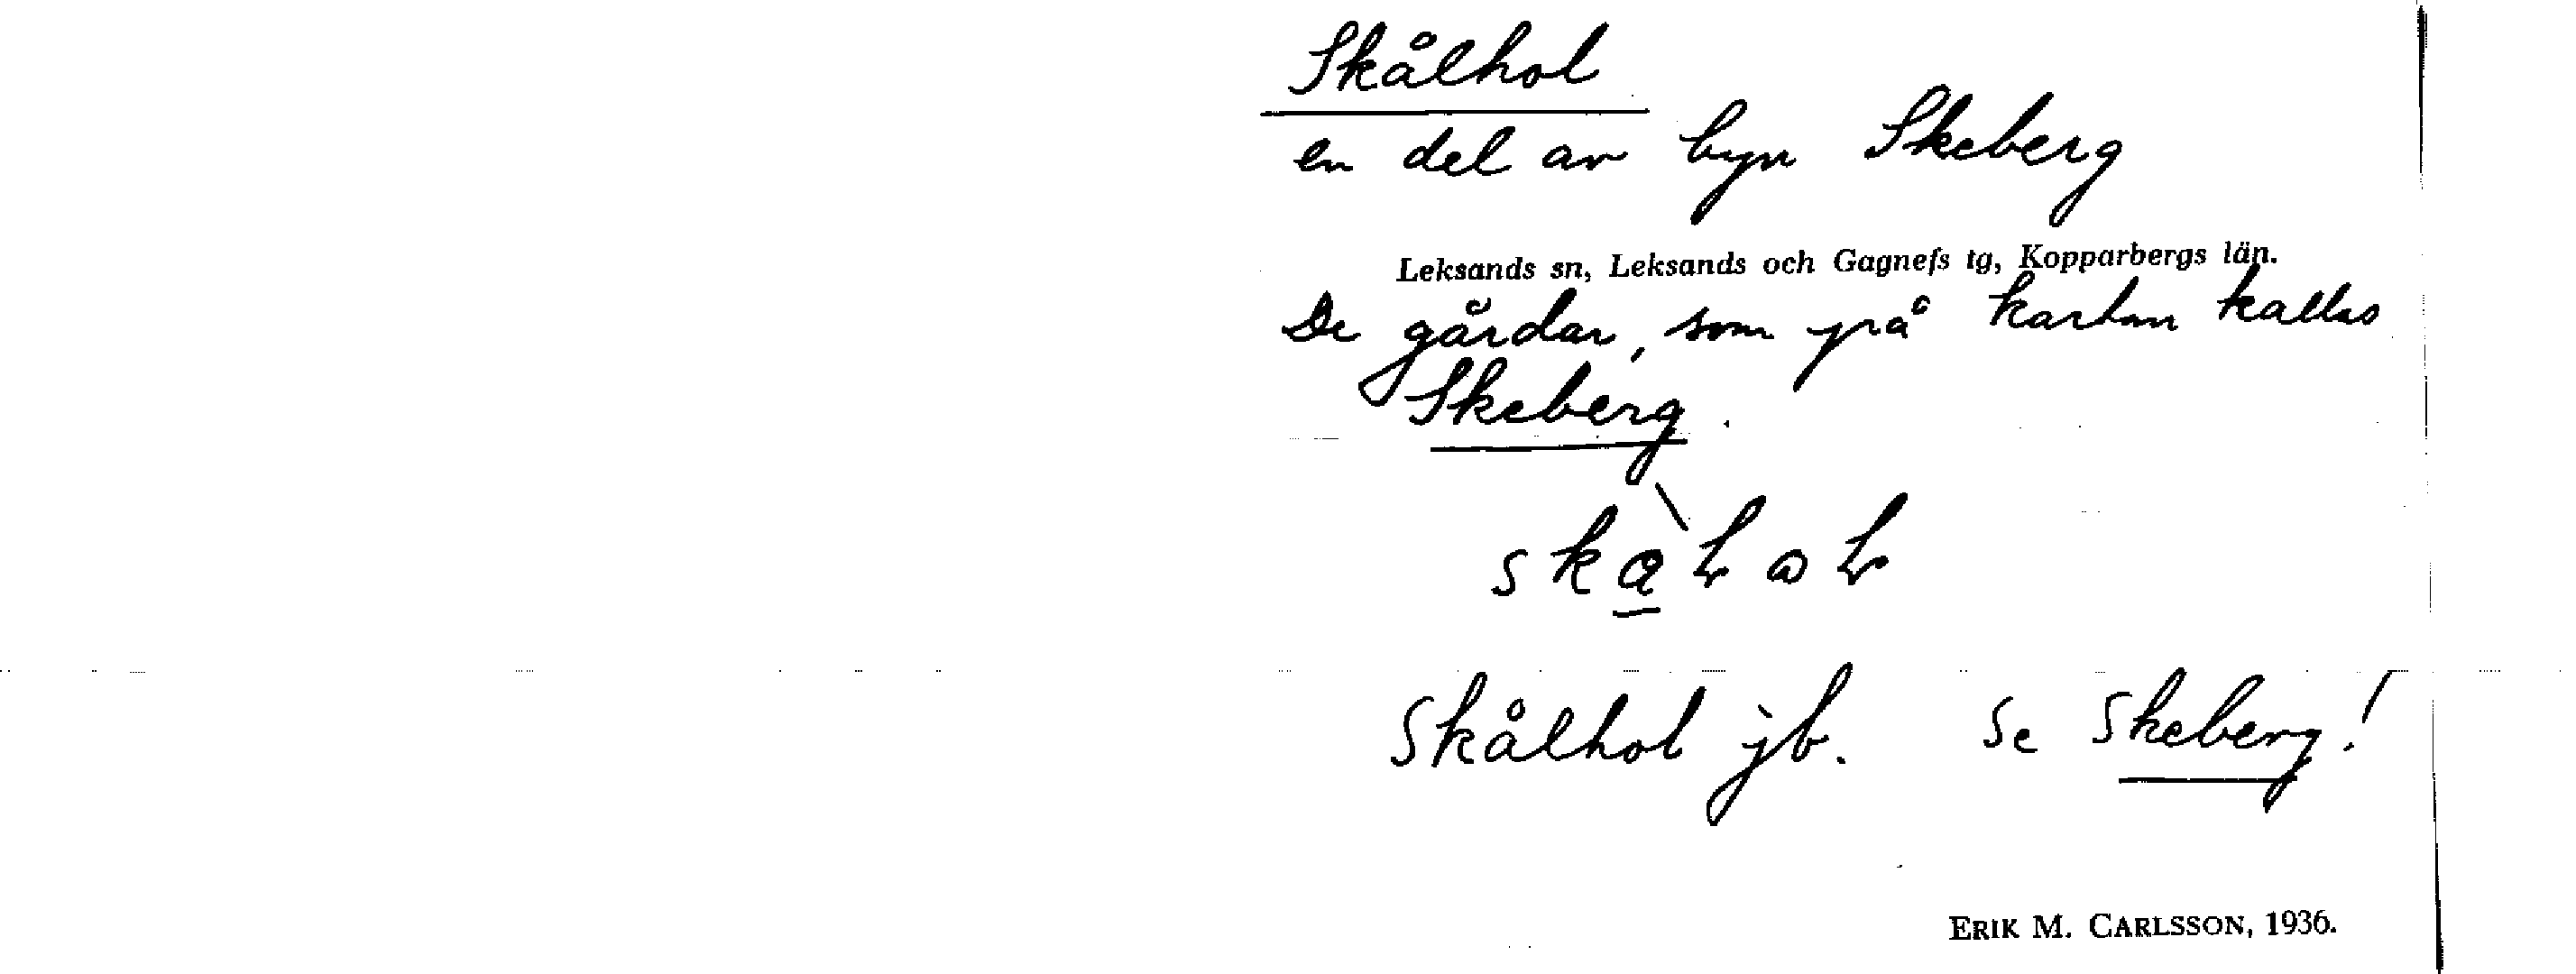 Skålhol
en del av byn Skeberg
Leksands sn, Leksands och Gagnefs tg, Kopparbergs län.
De gårdar, som på kartan kallas
Skeberg.
Skålhol jb. Se Skeberg!
ERIK M. CARLSSON, 1936.